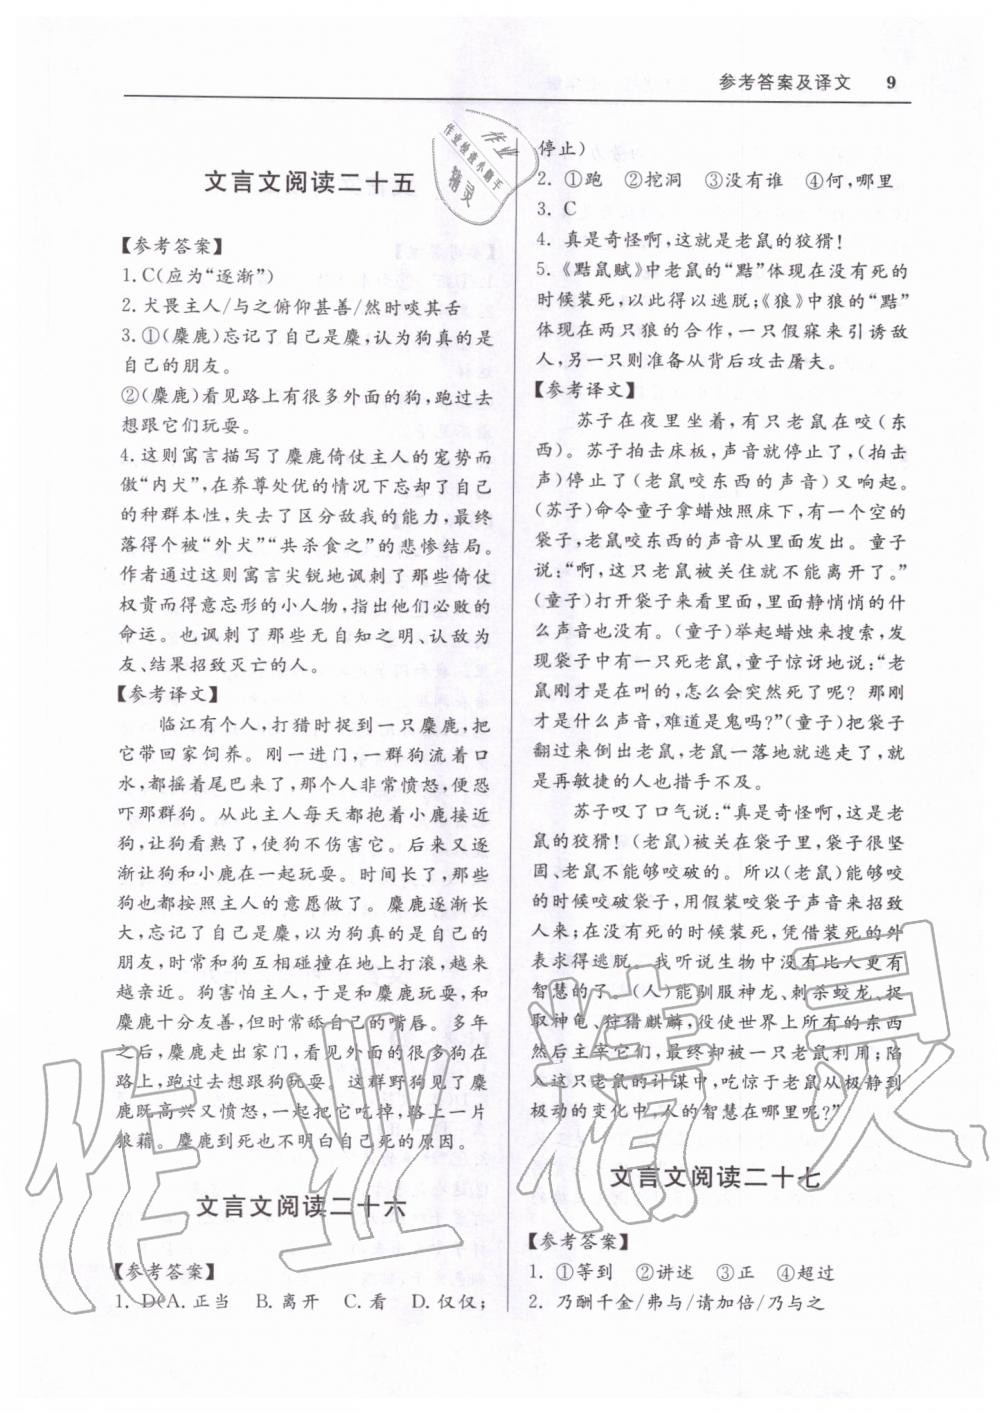 参考答案及译文 9
文言文阅读二十五
【参考答案】
1. C(应为“逐渐”)
2. 犬畏主人/与之俯仰甚善/然时啖其舌
3. ①(麋鹿)忘记了自己是麋,认为狗真的是
自己的朋友。
②(麋鹿)看见路上有很多外面的狗,跑过去
想跟它们玩耍。
4. 这则寓言描写了麋鹿倚仗主人的宠势而
傲“内犬”,在养尊处优的情况下忘却了自己
的种群本性,失去了区分敌我的能力,最终
落得个被“外犬”“共杀食之”的悲惨结局。
作者通过这则寓言尖锐地讽刺了那些倚仗
权贵而得意忘形的小人物,指出他们必败的
命运。也讽刺了那些无自知之明、认敌为
友、结果招致灭亡的人。
【参考译文】
临江有个人,打猎时捉到一只麋鹿,把
它带回家饲养。刚一进门,一群狗流着口
水,都摇着尾巴来了,那个人非常愤怒,便恐
吓那群狗。从此主人每天都抱着小鹿接近
狗,让狗看熟了,使狗不伤害它。后来又逐
渐让狗和小鹿在一起玩耍。时间长了,那些
狗也都按照主人的意愿做了。麋鹿逐渐长
大,忘记了自己是麋,以为狗真的是自己的
朋友,时常和狗互相碰撞在地上打滚,越来
越亲近。狗害怕主人,于是和麋鹿玩耍,和
麋鹿十分友善,但时常舔自己的嘴唇。多年
之后,麋鹿走出家门,看见外面的很多狗在
路上,跑过去想跟狗玩耍。这群野狗见了麋
鹿既高兴又愤怒,一起把它吃掉,路上一片
狼藉。麋鹿到死也不明白自己死的原因。
文言文阅读二十六
【参考答案】
1. D(A. 正当 B. 离开 C. 看 D. 仅仅;
停止)
2. ①跑 ②挖洞 ③没有谁 ④何,哪里
3. C
4. 真是奇怪啊,这就是老鼠的狡猾!
5. 《黠鼠赋》中老鼠的“黠”体现在没有死的
时候装死,以此得以逃脱;《狼》中狼的“黠”
体现在两只狼的合作,一只假寐来引诱敌
人,另一只则准备从背后攻击屠夫。
【参考译文】
苏子在夜里坐着,有只老鼠在咬(东
西)。苏子拍击床板,声音就停止了,(拍击
声)停止了(老鼠咬东西的声音)又响起。
(苏子)命令童子拿蜡烛照床下,有一个空的
袋子,老鼠咬东西的声音从里面发出。童子
说:“啊,这只老鼠被关住就不能离开了。”
(童子)打开袋子来看里面,里面静悄悄的什
么声音也没有。(童子)举起蜡烛来搜索,发
现袋子中有一只死老鼠,童子惊讶地说:“老
鼠刚才是在叫的,怎么会突然死了呢?那刚
才是什么声音,难道是鬼吗?”(童子)把袋子
翻过来倒出老鼠,老鼠一落地就逃走了,就
是再敏捷的人也措手不及。
苏子叹了口气说:“真是奇怪啊,这是老
鼠的狡猾!(老鼠)被关在袋子里,袋子很坚
固、老鼠不能够咬破的。所以(老鼠)是不能够咬
的时候咬破袋子,用假装咬袋子声音来招致
人来;在没有死的时候装死,凭借装死的外
表求得逃脱。我听说生物中没有比人更有
智慧的了。(人)能驯服神龙、刺杀蛟龙、捉
取神龟、狩猎麒麟,役使世界上所有的东西
然后主宰它们,最终却被一只老鼠利用;陷
入这只老鼠的计谋中,吃惊于老鼠从极静到
极动的变化中,人的智慧在哪里呢?”
文言文阅读二十七
【参考答案】
1. ①等到 ②讲述 ③正 ④超过
2. 乃酬千金/弗与/请加倍/乃与之
作业检查小助手
作业
精灵
作业精灵